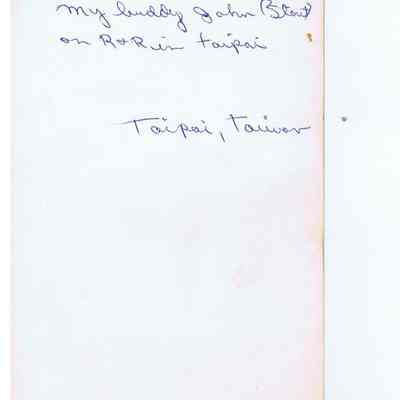 My buddy John (Stout)
on R&R in taipai
Taipai, Taiwan